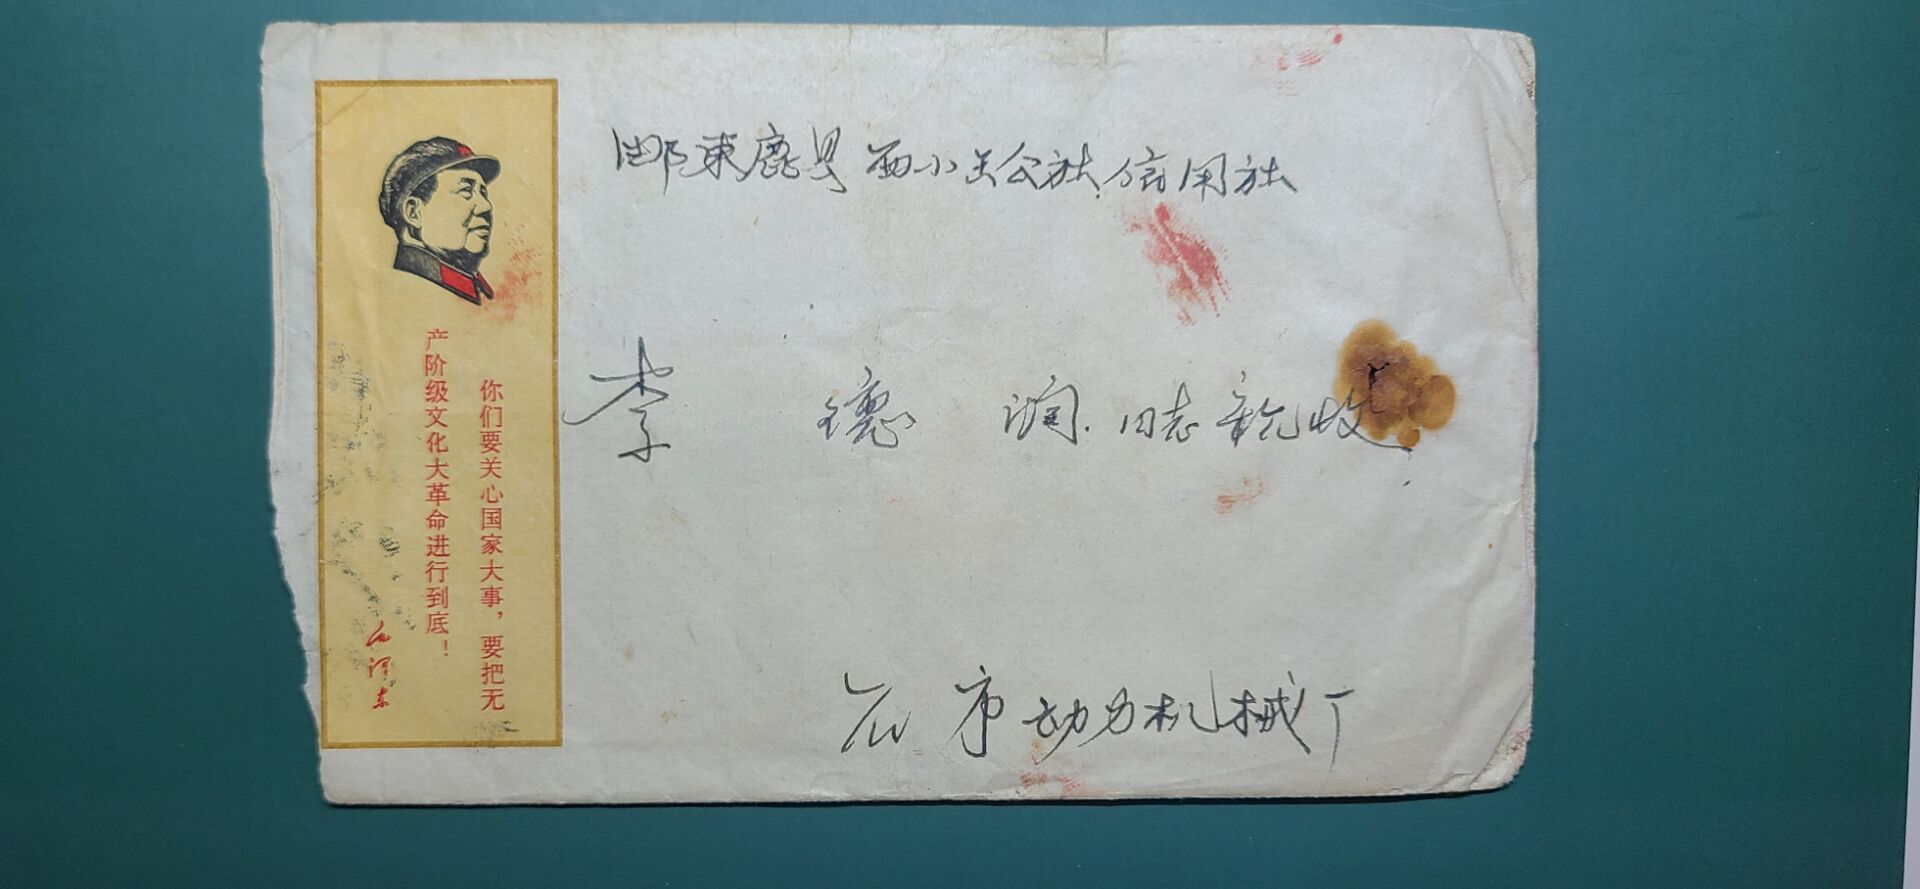 邮束鹿县西小关公社信用社
李德润同志亲收
石市动力机械厂
你们要关心国家大事，要把无
产阶级文化大革命进行到底！
毛泽东